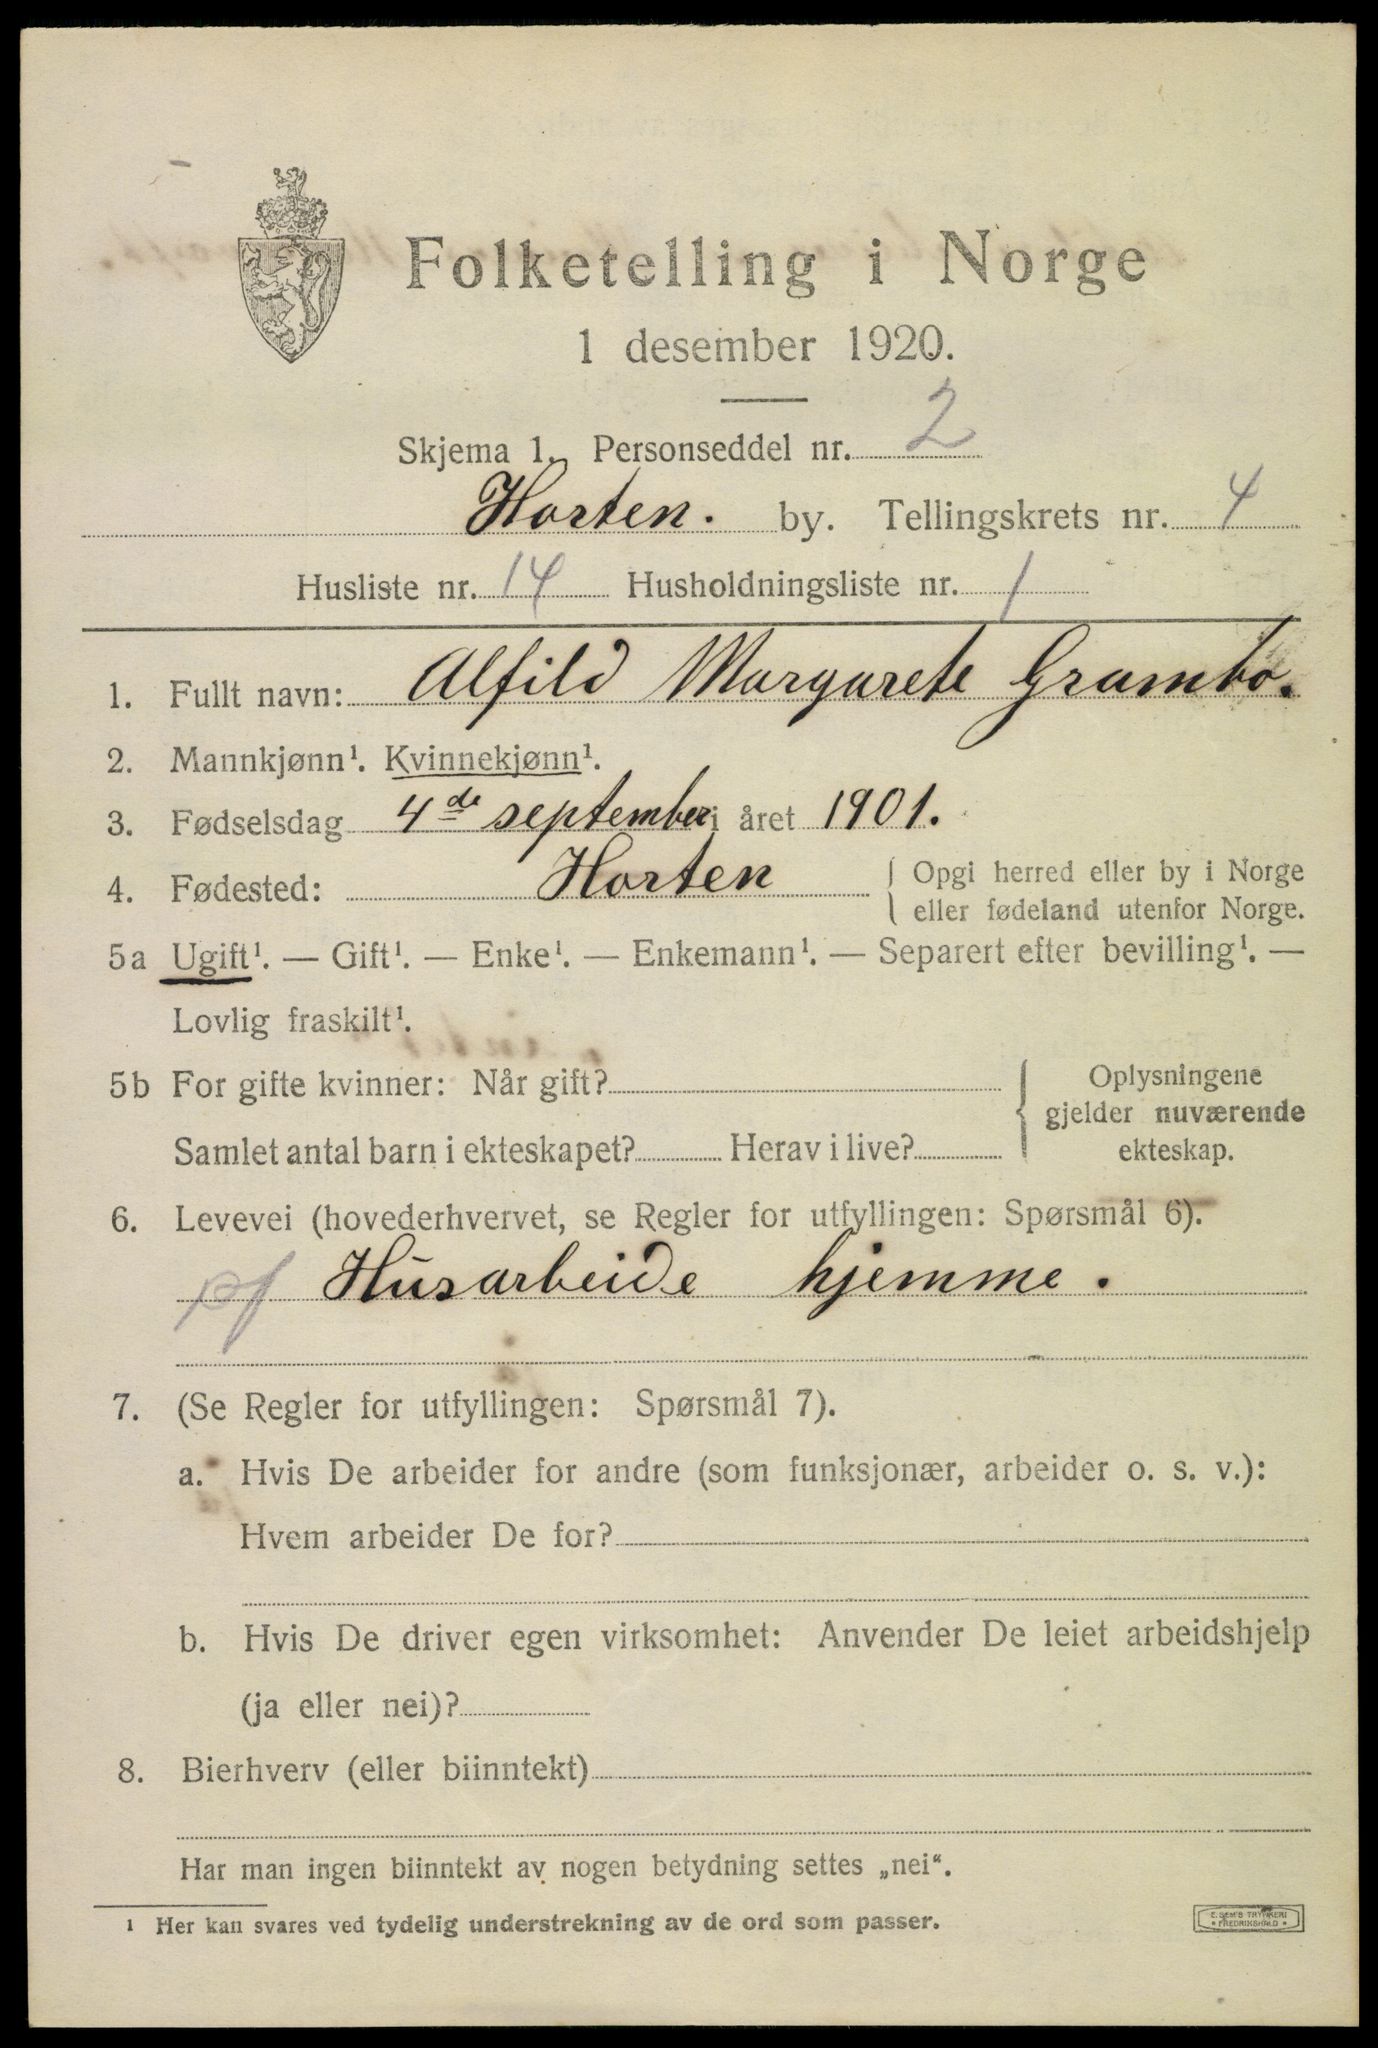 Folketelling i Norge
1 desember 1920.
Skjema 1. Personseddel nr. 2
Horten. by. Tellingskrets nr. 4
Husliste nr. 14 Husholdningsliste nr. 1
1. Fullt navn: Alfild Margarete Grambo.
2. Mannkjønn¹. Kvinnekjønn¹.
3. Fødselsdag 4de september i året 1901.
4. Fødested: Horten { Opgi herred eller by i Norge
eller fødeland utenfor Norge.
5a Ugift¹. — Gift¹. — Enke¹. — Enkemann¹. — Separert efter bevilling¹. —
Lovlig fraskilt¹.
5b For gifte kvinner: Når gift? { Oplysningene
gjelder nuværende
Samlet antal barn i ekteskapet? Herav i live? ekteskap.
6. Levevei (hovederhvervet, se Regler for utfyllingen: Spørsmål 6).
pf Husarbeide hjemme.
7. (Se Regler for utfyllingen: Spørsmål 7).
a. Hvis De arbeider for andre (som funksjonær, arbeider o. s. v.):
Hvem arbeider De for?
b. Hvis De driver egen virksomhet: Anvender De leiet arbeidshjelp
(ja eller nei)?
8. Bierhverv (eller biinntekt)
Har man ingen biinntekt av nogen betydning settes „nei“.
1 Her kan svares ved tydelig understrekning av de ord som passer.
E. SEM'S TRYKKERI
* FREDRIKSHALD *